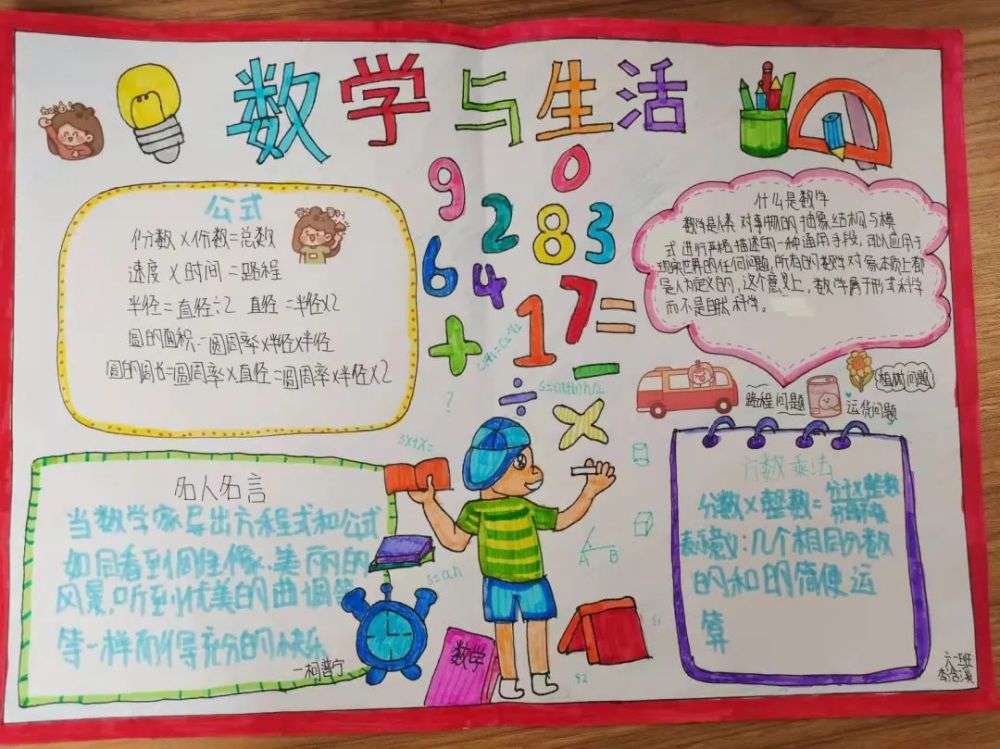 数学与生活
公式
份数×份数=总数
速度×时间=路程
半径=直径÷2 直径=半径×2
圆的面积=圆周率×半径×半径
圆的周长=圆周率×直径=圆周率×半径×2
9 0
2 8 3
6 4 1 7 =
+ -
÷ ×
?
3x+x=
s=(a+b)h/2
s=ah
A B
S1
S2
什么是数学
数学是人类对事物的抽象结构与模
式进行严格描述的一种通用手段,可以应用于
现实世界的任何问题,所有的数学对象本质上都
是人为定义的,这个意义上,数学属于形式科学
而不是自然科学。
路程问题
运货问题
植树问题
名人名言
当数学家导出方程式和公式
如同看到雕像、美丽的
风景,听到优美的曲调等
等一样而得充分的快乐
一柯普宁
数学
分数乘法
分数×整数=
表示意义:几个相同分数
的和的简便运
算
六一班